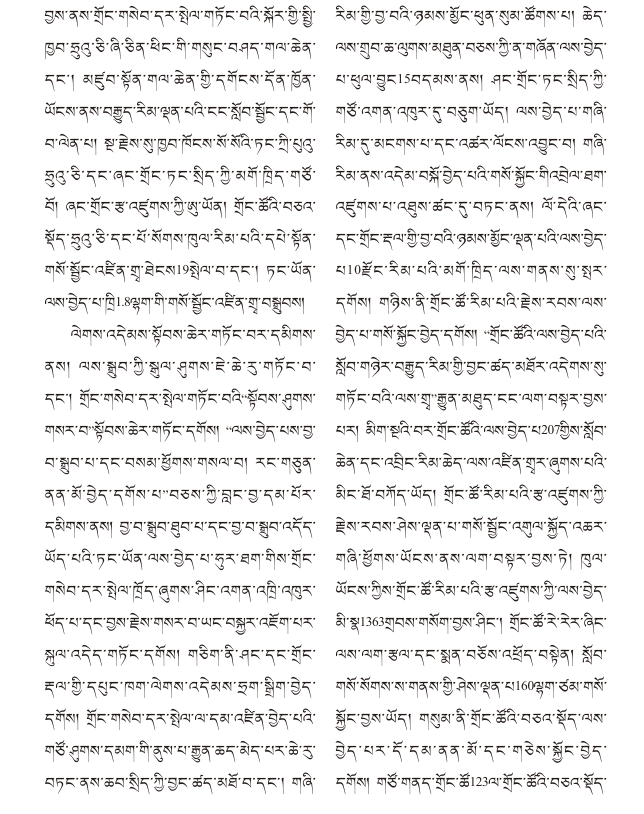 བྱས་ནས་གྲོང་གསེབ་དར་སྤེལ་གཏོང་བའི་སྐོར་གྱི་སྤྱི་
ཁྱབ་ཧྲུའུ་ཅི་ཞི་ཅིན་ཕིང་གི་གསུང་བཤད་གལ་ཆེན་
དང་། མཛུབ་སྟོན་གལ་ཆེན་གྱི་དགོངས་དོན་ཁྱོན་
ཡོངས་ནས་བརྒྱུད་རིམ་ལྡན་པའི་ངང་སློབ་སྦྱོང་དང་གོ་
བ་ལེན་པ། སྔ་རྗེས་སུ་ཁྱབ་ཁོངས་སོ་སོའི་ཏང་ཀྲི་པུའུ་
ཧྲུའུ་ཅི་དང་ཞང་གྲོང་ཏང་སྲིད་ཀྱི་མགོ་ཁྲིད་གཙོ་
བོ། ཞང་གྲོང་རྩ་འཛུགས་ཀྱི་ཨུ་ཡོན། གྲོང་ཚོའི་བཅའ་
སྡོད་ཧྲུའུ་ཅི་དང་པོ་སོགས་ཁུལ་རིམ་པའི་དཔེ་སྟོན་
གསོ་སྦྱོང་འཛིན་གྲྭ་ཐེངས19སྤེལ་བ་དང་། ཏང་ཡོན་
ལས་བྱེད་པ་ཁྲི1.8ལྷག་གི་གསོ་སྦྱོང་འཛིན་གྲྭ་བསྒྲུབས།
ལེགས་འདེམས་སྟོབས་ཆེར་གཏོང་བར་དམིགས་
ནས། ལས་སྒྲུབ་ཀྱི་སྒུལ་ཤུགས་ཇེ་ཆེ་རུ་གཏོང་བ་
དང་། གྲོང་གསེབ་དར་སྤེལ་གཏོང་བའི“སྟོབས་ཤུགས་
གསར་བ”སྟོབས་ཆེར་གཏོང་དགོས། “ལས་བྱེད་པས་བྱ་
བ་སྒྲུབ་པ་དང་བསམ་ཕྱོགས་གསལ་བ། རང་གཅུན་
ནན་མོ་བྱེད་དགོས་པ”བཅས་ཀྱི་བླང་བྱ་དམ་པོར་
དམིགས་ནས། བྱ་བ་སྒྲུབ་ཐུབ་པ་དང་བྱ་བ་སྒྲུབ་འདོད་
ཡོད་པའི་ཏང་ཡོན་ལས་བྱེད་པ་ཧུར་ཐག་གིས་གྲོང་
གསེབ་དར་སྤེལ་ཁྲོད་ཞུགས་ཤིང་འགན་འཁྲི་འཁུར་
ཕོད་པ་དང་བྱས་རྗེས་གསར་བ་ཡང་བསྐྱར་འཇོག་པར་
སྐུལ་འདེད་གཏོང་དགོས། གཅིག་ནི་ཤང་དང་གྲོང་
རྡལ་གྱི་དཔུང་ཁག་ལེགས་འདེམས་ཧྲག་སྒྲིག་བྱེད་
དགོས། གྲོང་གསེབ་དར་སྤེལ་ལ་དམ་འཛིན་བྱེད་པའི་
གཙོ་ཤུགས་དམག་གི་ནུས་པ་རྒྱུན་ཆད་མེད་པར་ཆེ་རུ་
བཏང་ནས་ཆབ་སྲིད་ཀྱི་བྱང་ཚད་མཐོ་བ་དང་། གཞི་
རིམ་གྱི་བྱ་བའི་ཉམས་མྱོང་ཕུན་སུམ་ཚོགས་པ། ཆེད་
ལས་གྲུབ་ཆ་ལུགས་མཐུན་བཅས་ཀྱི་ན་གཞོན་ལས་བྱེད་
པ་ཕུལ་བྱུང15བདམས་ནས། ཤང་གྲོང་ཏང་སྲིད་ཀྱི་
གཙོ་འགན་འཁུར་དུ་བཅུག་ཡོད། ལས་བྱེད་པ་གཞི་
རིམ་དུ་མངགས་པ་དང་འཚར་ལོངས་འབྱུང་བ། གཞི་
རིམ་ནས་འདེམ་བསྐོ་བྱེད་པའི་གསོ་སྐྱོང་གིའབྲེལ་ཐག་
འཛུགས་པ་འཐུས་ཚང་དུ་བཏང་ནས། ལོ་དེའི་ཞང་
དང་གྲོང་རྡལ་གྱི་བྱ་བའི་ཉམས་མྱོང་ལྡན་པའི་ལས་བྱེད་
པ10རྫོང་རིམ་པའི་མགོ་ཁྲིད་ལས་གནས་སུ་སྤར་
དགོས། གཉིས་ནི་གྲོང་ཚོ་རིམ་པའི་རྗེས་རབས་ལས་
བྱེད་པ་གསོ་སྐྱོང་བྱེད་དགོས། “གྲོང་ཚོའི་ལས་བྱེད་པའི་
སློབ་གཉེར་བརྒྱུད་རིམ་གྱི་བྱང་ཚད་མཐོར་འདེགས་སུ་
གཏོང་བའི་ལས་གྲྭ”རྒྱུན་མཐུད་ངང་ལག་བསྟར་བྱས་
པར། མིག་སྔའི་བར་གྲོང་ཚོའི་ལས་བྱེད་པ207གྱིས་སློབ་
ཆེན་དང་འབྲིང་རིམ་ཆེད་ལས་འཛིན་གྲྭར་ཞུགས་པའི་
མིང་ཐོ་བཀོད་ཡོད། གྲོང་ཚོ་རིམ་པའི་རྩ་འཛུགས་ཀྱི་
རྗེས་རབས་ཤེས་ལྡན་པ་གསོ་སྦྱོང་འགུལ་སྐྱོད་འཆར་
གཞི་ཕྱོགས་ཡོངས་ནས་ལག་བསྟར་བྱས་ཏེ། ཁུལ་
ཡོངས་ཀྱིས་གྲོང་ཚོ་རིམ་པའི་རྩ་འཛུགས་ཀྱི་ལས་བྱེད་
མི་སྣ1363གྲབས་གསོག་བྱས་ཤིང་། གྲོང་ཚོ་རེ་རེར་ཞིང་
ལས་ལག་རྩལ་དང་སྨན་བཅོས་འཕྲོད་བསྟེན། སློབ་
གསོ་སོགས་ས་གནས་གྱི་ཤེས་ལྡན་པ160ལྷག་ཙམ་གསོ་
སྐྱོང་བྱས་ཡོད། གསུམ་ནི་གྲོང་ཚོའི་བཅའ་སྡོད་ལས་
བྱེད་པར་དོ་དམ་ནན་མོ་དང་གཅེས་སྐྱོང་བྱེད་
དགོས། གཙོ་གནད་གྲོང་ཚོ123ལ་གྲོང་ཚོའི་བཅའ་སྡོད་